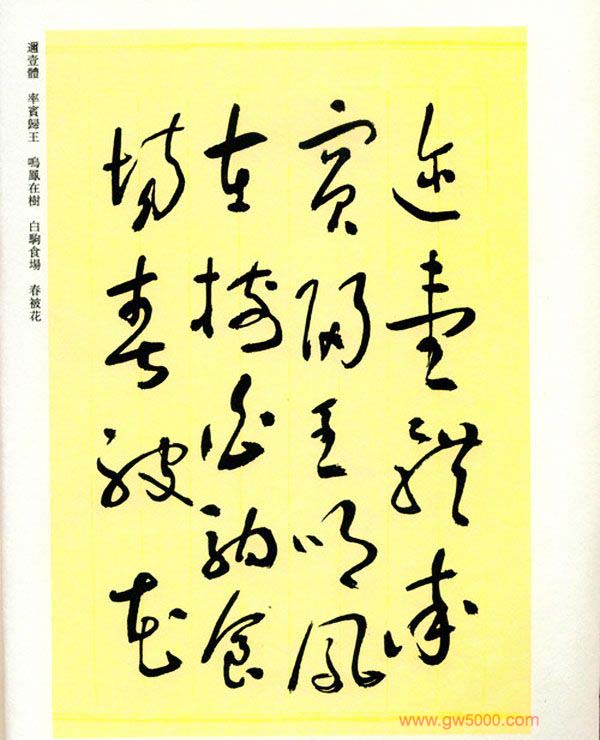 邇壹體率
賓歸王鳴鳳
在樹白駒食
場春被花
邇壹體 率賓歸王 鳴鳳在樹 白駒食場 春被花
www.gw5000.com